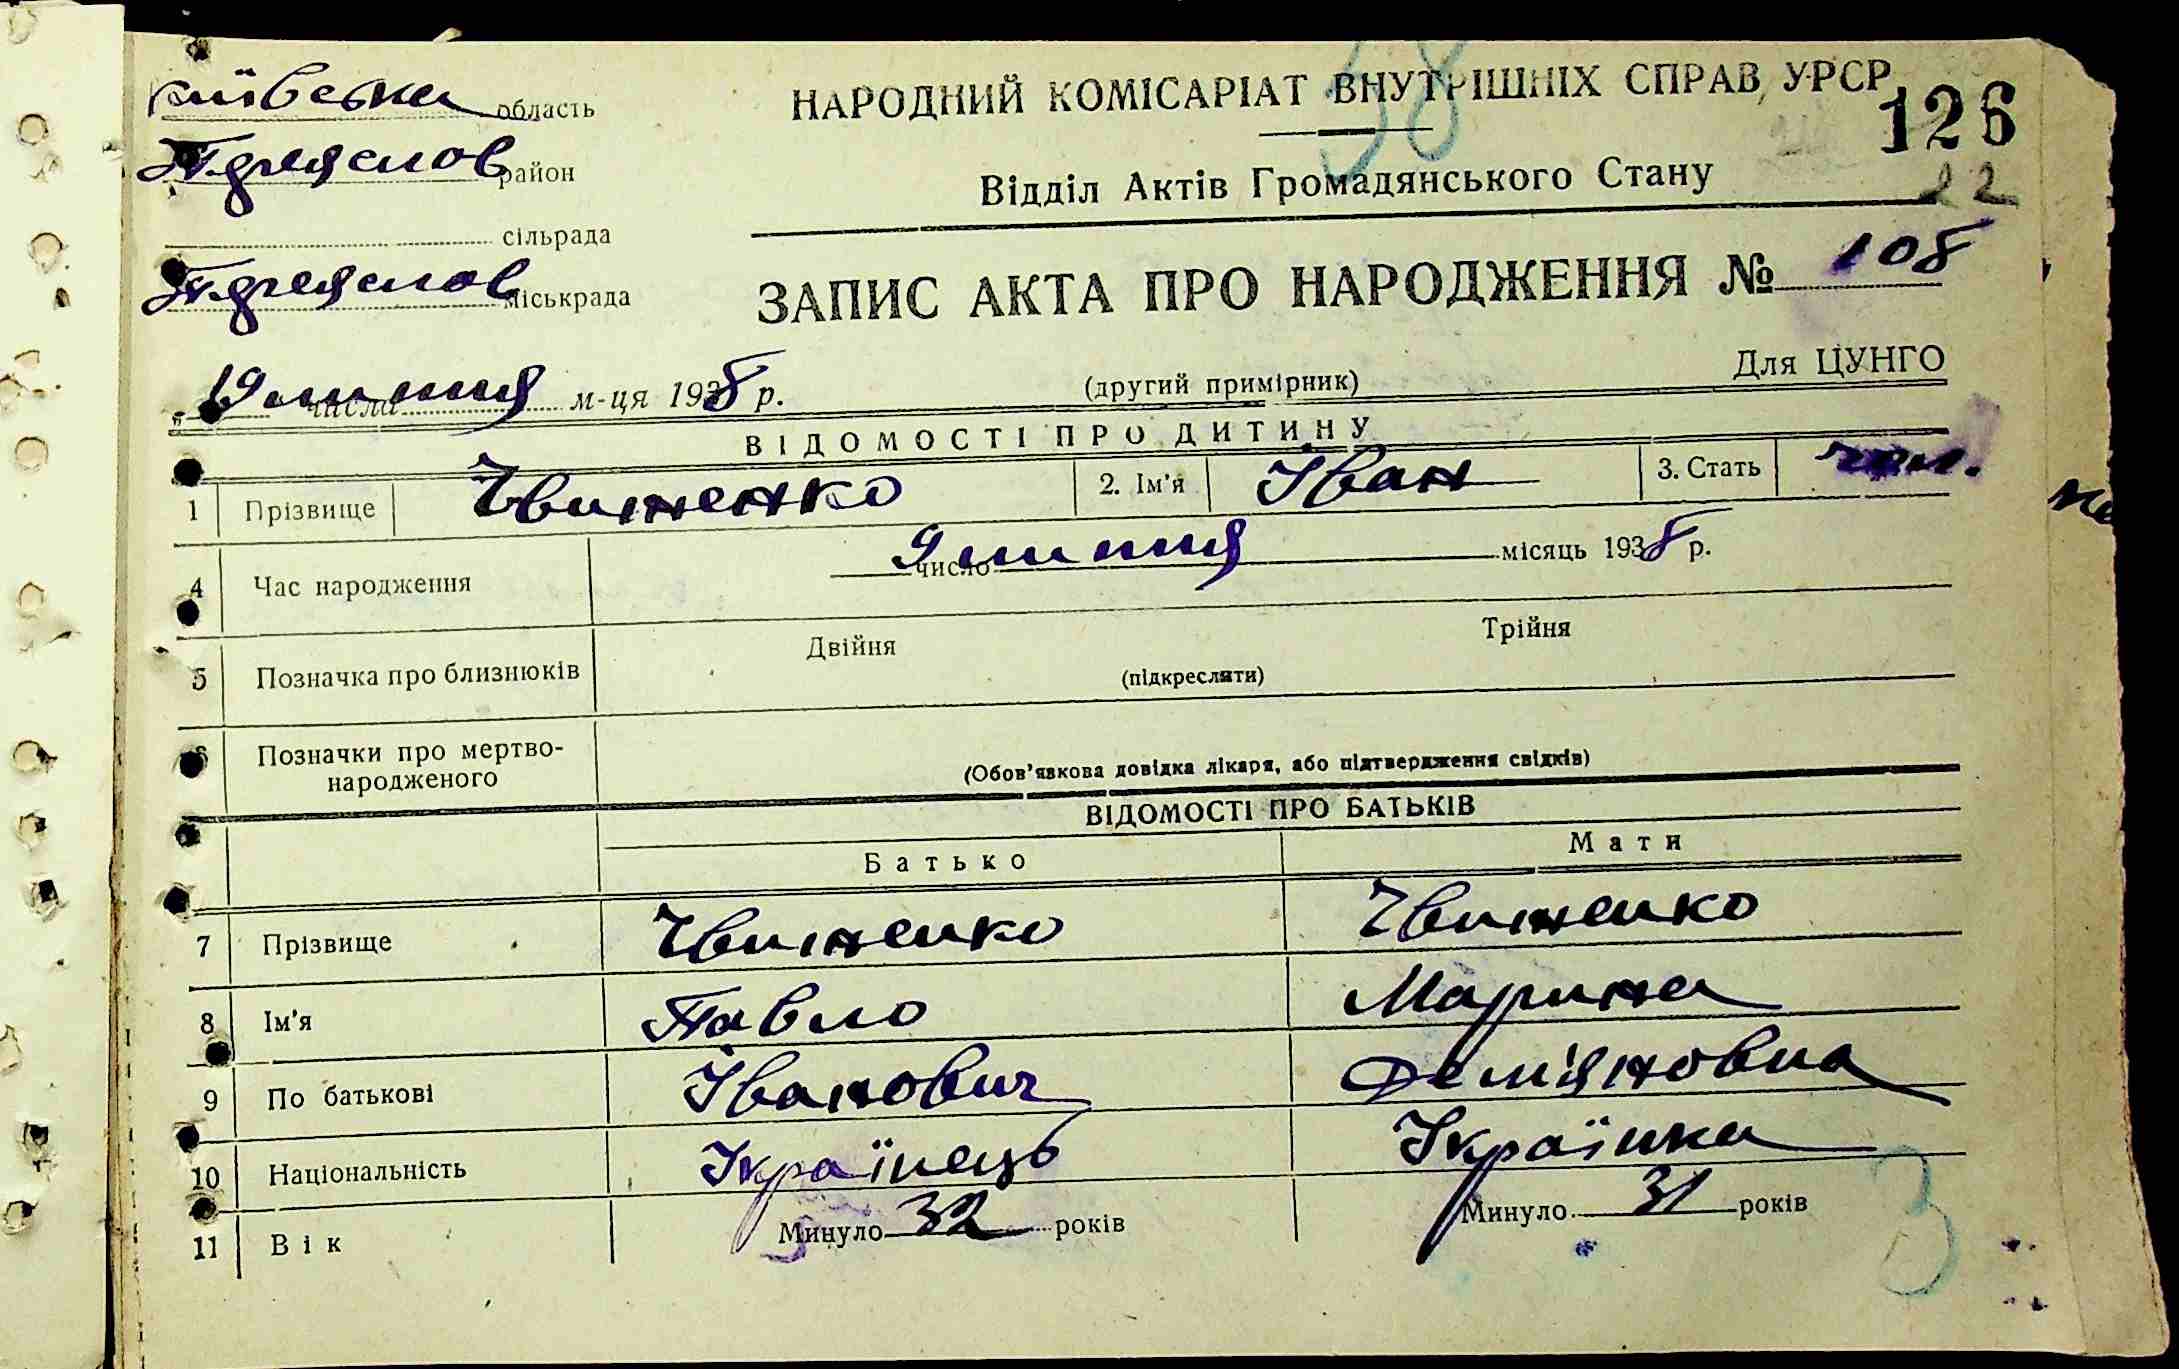 Київська область
НАРОДНИЙ КОМІСАРІАТ ВНУТРІШНІХ СПРАВ УРСР
38
126
22
район
Відділ Актів Громадянського Стану
сільрада
міськрада
ЗАПИС АКТА ПРО НАРОДЖЕННЯ № 108
„19 числа липня м-ця 1938 р.
(другий примірник)
Для ЦУНГО
ВІДОМОСТІ ПРО ДИТИНУ
1 Прізвище Чвиненко 2. Ім'я Іван 3. Стать чол.
4 Час народження 9 число липня місяць 1938 р.
5 Позначка про близнюків Двійня Трійня
(підкреслити)
6 Позначки про мертво-
народженого
(Обов'язкова довідка лікаря, або підтвердження свідків)
ВІДОМОСТІ ПРО БАТЬКІВ
Батько Мати
7 Прізвище Чвиненко Чвиненко
8 Ім'я Павло Марина
9 По батькові Іванович Дем'яновна
10 Національність Українець Українка
11 Вік Минуло 32 років Минуло 31 років
3